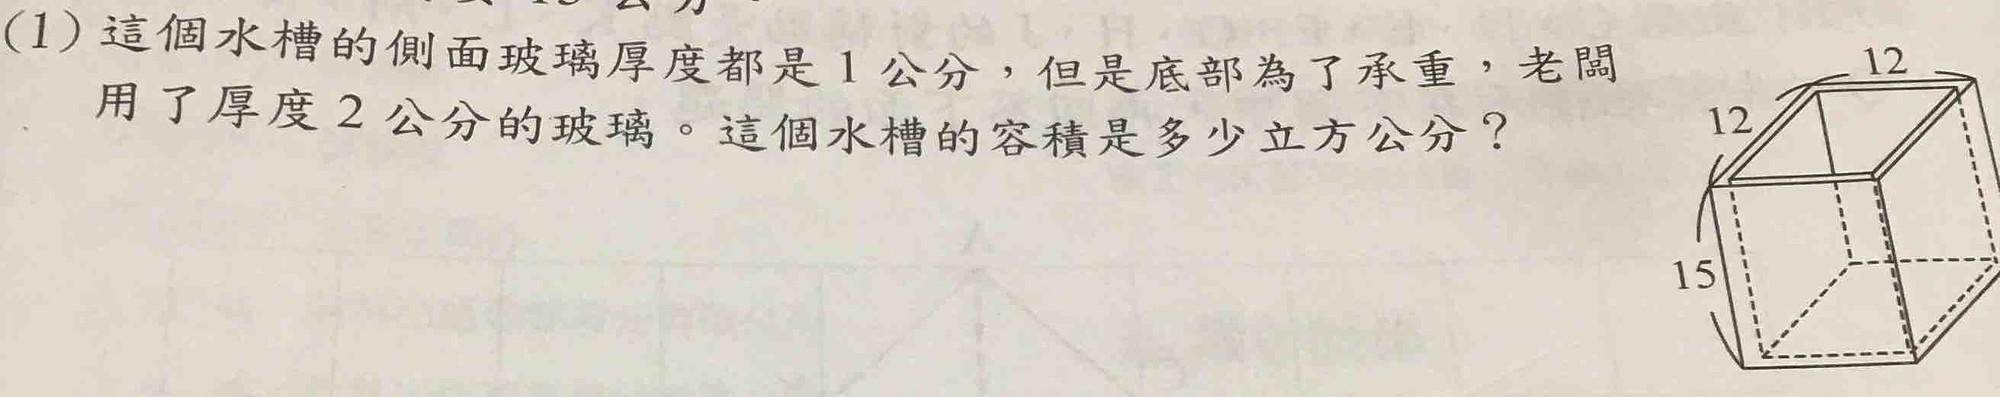 (1) 這個水槽的側面玻璃厚度都是 1 公分，但是底部為了承重，老闆
用了厚度 2 公分的玻璃。這個水槽的容積是多少立方公分？
12
12
15